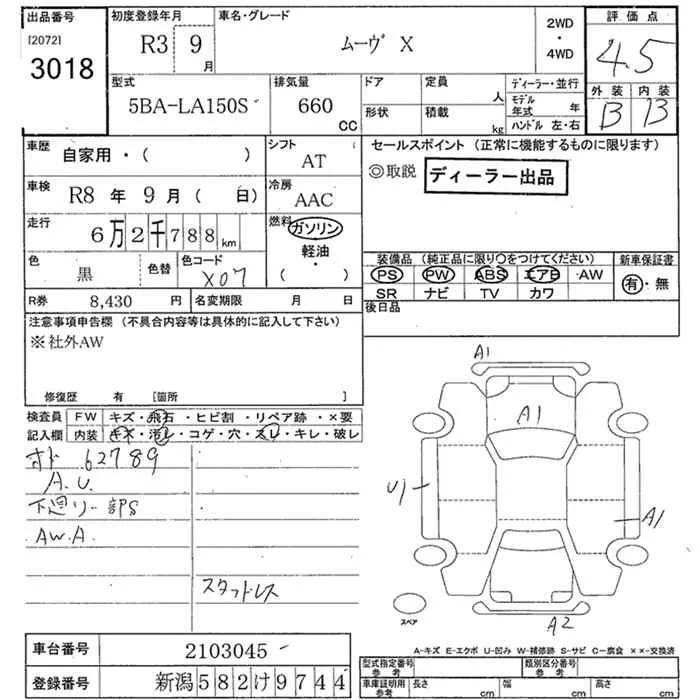 出品番号 初度登録年月 車名・グレード 2WD・4WD 評価点
[2072] R3 9月 ムーヴ X 4.5
3018
型式 排気量 ドア 定員 人 ディーラー・並行 外装 内装
5BA-LA150S 660 CC 形状 積載 kg モデル年式 年 B B
ハンドル 左・右
車歴 自家用・( ) シフト AT セールスポイント (正常に機能するものに限ります)
◎取説 ディーラー出品
車検 R8 年 9 月( 日) 冷房 AAC
走行 6万2千788km 燃料 ガソリン・軽油・( )
色 黒 色替 色コード X07 装備品 (純正品に限り○をつけてください) 新車保証書
PS PW ABS エアB AW 有・無
SR ナビ TV カワ
R券 8,430 円 名変期限 月 日 後日品
注意事項申告欄 (不具合内容等は具体的に記入して下さい)
※社外AW
修復歴 有 [箇所 ]
検査員 FW キズ・飛石・ヒビ割・リペア跡・×要
記入欄 内装 キズ・汚レ・コゲ・穴・スレ・キレ・破レ
オド 62789
A.U.
下廻り一部S
AW.A
スタッドレス
A1
A1
U1
A1
A2
スペア
A-キズ E-エクボ U-凹み W-補修跡 S-サビ C-腐食 ××-交換済
車台番号 2103045
型式指定番号 参考 類別区分番号 参考
登録番号 新潟582け9744
車庫証明用 参考 長さ cm 幅 cm 高さ cm